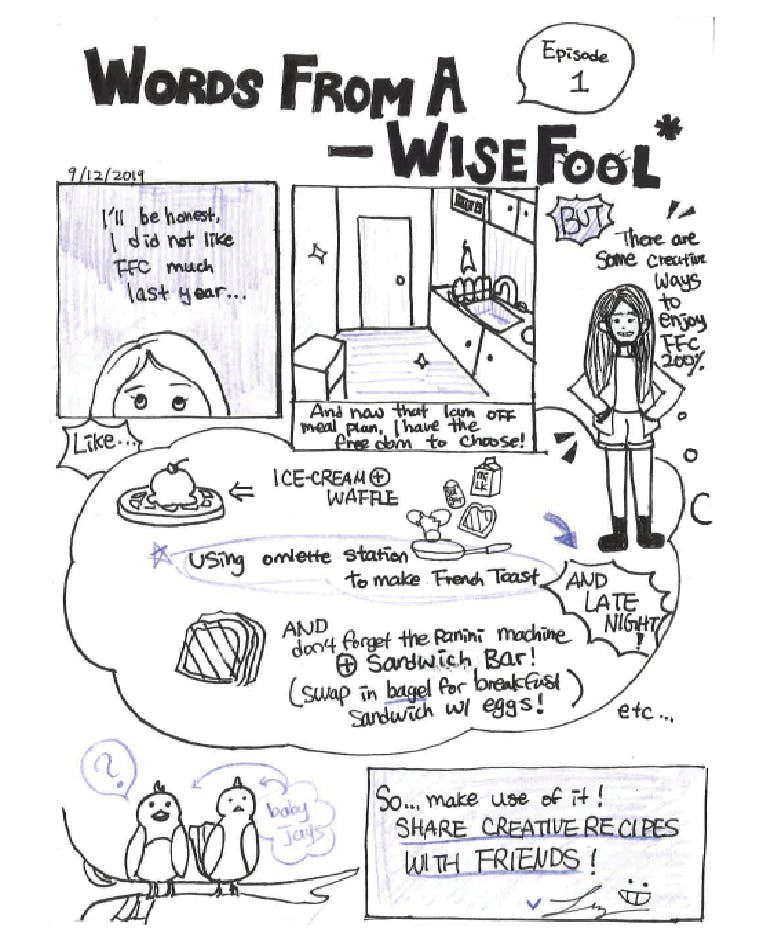 Episode
1
WORDS FROM A
- WISE FOOL*
9/12/2019
I'll be honest,
I did not like
FFC much
last year...
And now that I am OFF
meal plan, I have the
freedom to choose!
BUT
There are
some creative
ways
to
enjoy
FFC
200%
Like...
ICE-CREAM ⊕
WAFFLE
MILK
☆ Using omlette station
to make French Toast
AND
LATE
NIGHT!
AND
don't forget the Panini machine
⊕ Sandwich Bar!
(swap in bagel for breakfast)
sandwich w/ eggs!
etc...
?
baby
jays
So... make use of it!
SHARE CREATIVE RECIPES
WITH FRIENDS!